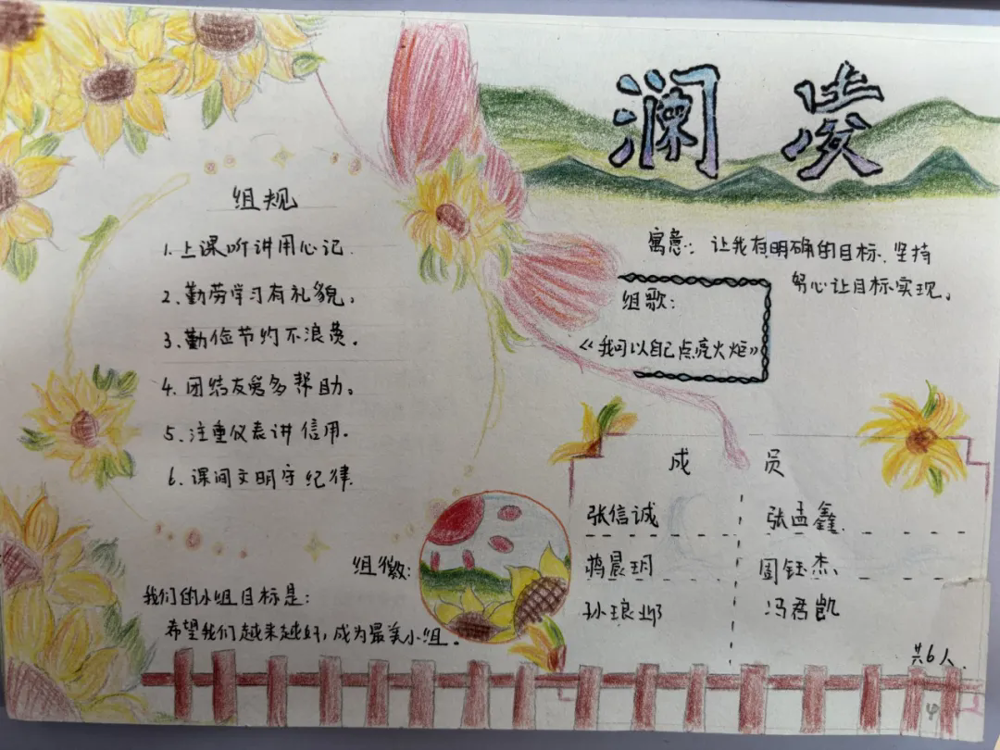 澜凌
组规
1.上课听讲用心记.
2.勤劳学习有礼貌。
3.勤俭节约不浪费.
4.团结友爱多帮助。
5.注重仪表讲信用.
6.课间文明守纪律.
寓意:让我有明确的目标.坚持
努心让目标实现。
组歌:
《我可以自己点亮火炬》
成 员
张信诚 张孟鑫.
蒋晨玥 周钰杰.
孙琅邪 冯君凯
共6人.
组徽:
我们的小组目标是:
希望我们越来越好,成为最美小组.